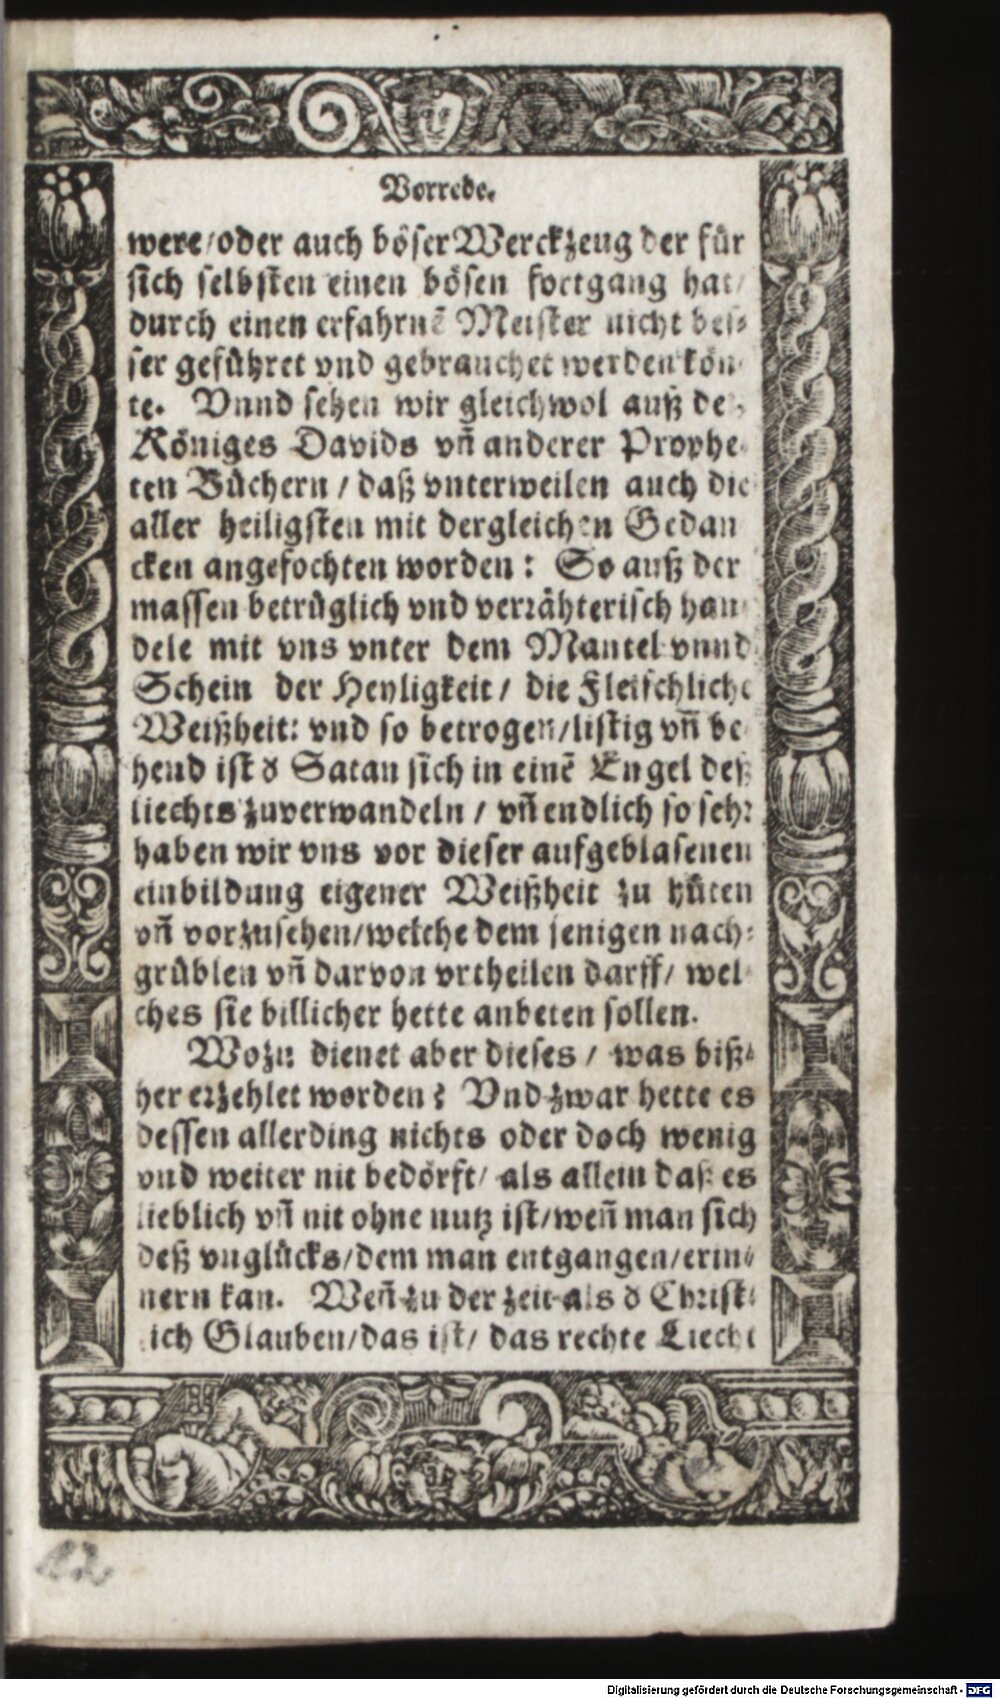 Vorrede.
were/oder auch böser Werckzeug der für
sich selbsten einen bösen fortgang hat/
durch einen erfahrnẽ Meister nicht bes-
ser geführet vnd gebrauchet werden kön-
te. Vnnd sehen wir gleichwol auß des
Königes Davids vñ anderer Prophe-
ten Büchern / daß vnterweilen auch die
aller heiligsten mit dergleichen Gedan
cken angefochten worden: So auß der
massen betrüglich vnd verrähterisch han-
dele mit vns vnter dem Mantel vnnd
Schein der Heyligkeit / die Fleischliche
Weißheit: vnd so betrogen/listig vñ be-
hend ist d̾ Satan sich in einẽ Engel deß
liechts zuverwandeln / vñ endlich so sehr
haben wir vns vor dieser aufgeblasenen
einbildung eigener Weißheit zu hüten
vñ vorzusehen/welche dem jenigen nach-
grüblen vñ darvon vrtheilen darff/ wel-
ches sie billicher hette anbeten sollen.
Wozu dienet aber dieses / was biß-
her erzehlet worden? Vnd zwar hette es
dessen allerding nichts oder doch wenig
vnd weiter nit bedörft/ als allein daß es
lieblich vñ nit ohne nutz ist/weñ man sich
deß vnglücks/dem man entgangen/erin-
nern kan. Weñ zu der zeit als d̾ Christ-
lich Glauben/das ist/ das rechte Liecht
12
Digitalisierung gefördert durch die Deutsche Forschungsgemeinschaft - DFG